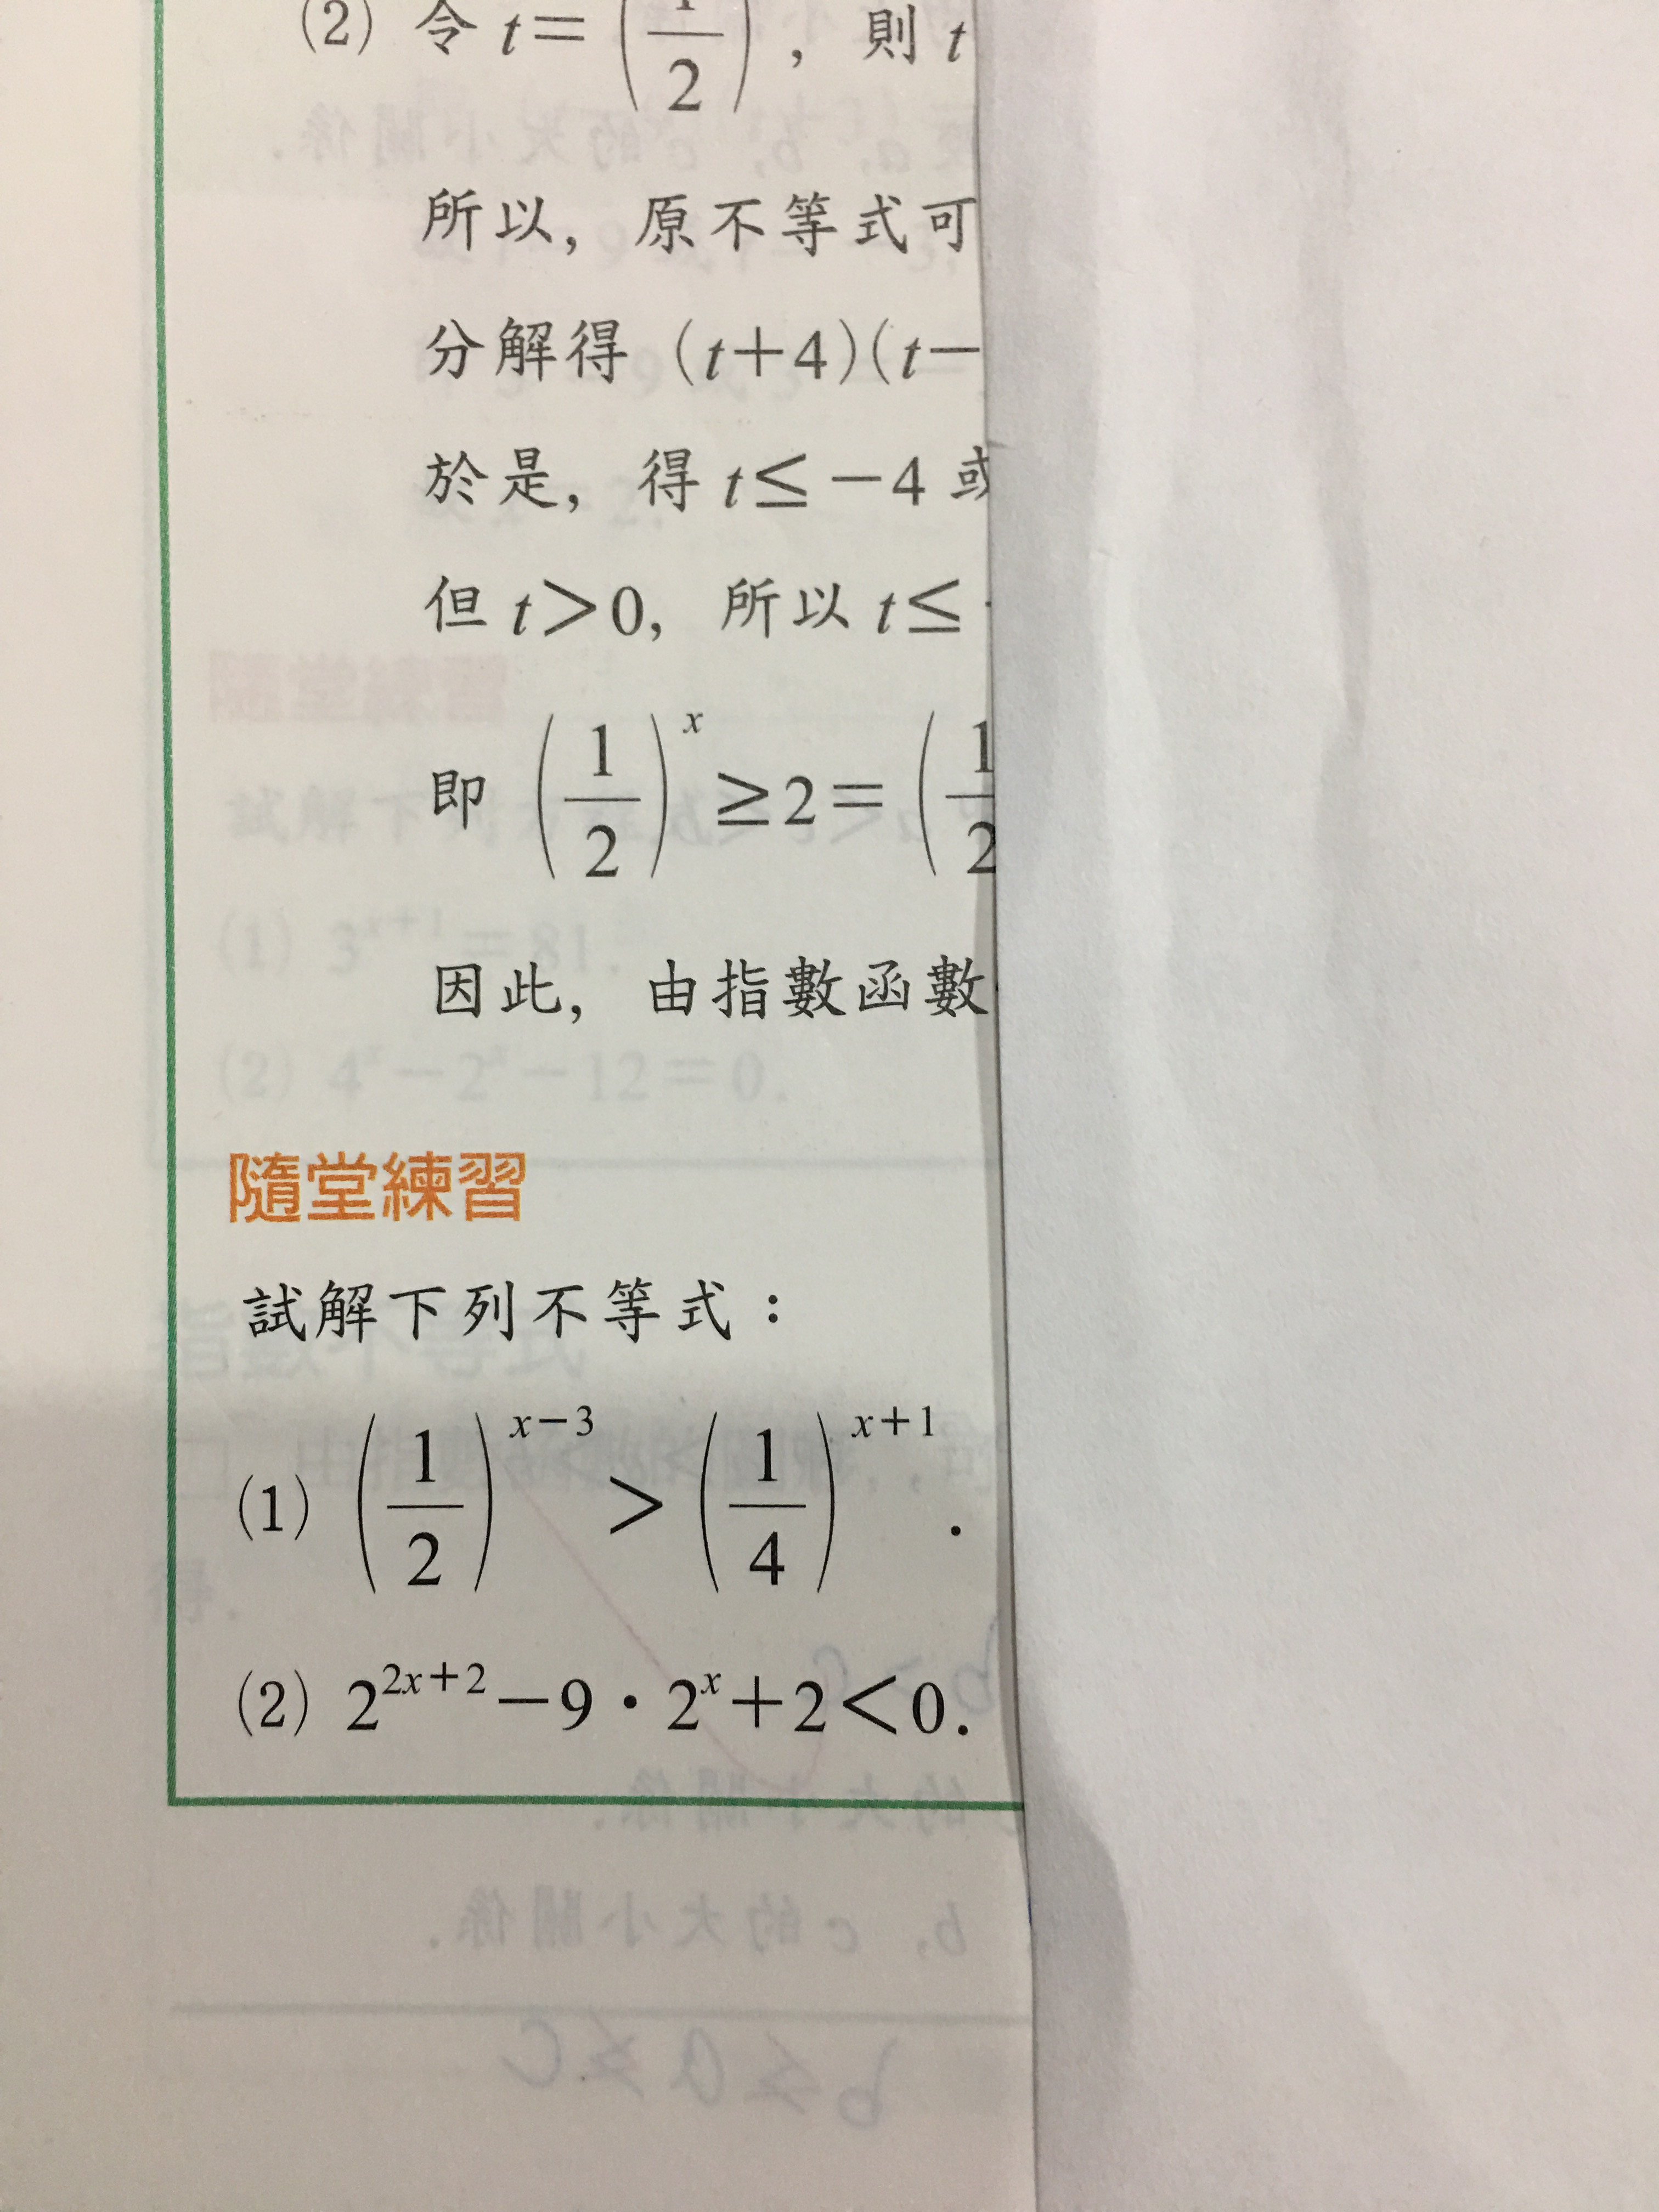 (2) 令 t=(1/2) ，則 t
所以，原不等式可
分解得 (t+4)(t−
於是，得 t≤−4 或
但 t>0，所以 t≤
即 (1/2)^x ≥2= (1/2
因此，由指數函數
隨堂練習
試解下列不等式：
(1) (1/2)^{x−3} > (1/4)^{x+1} .
(2) 2^{2x+2}−9・2^x+2<0.